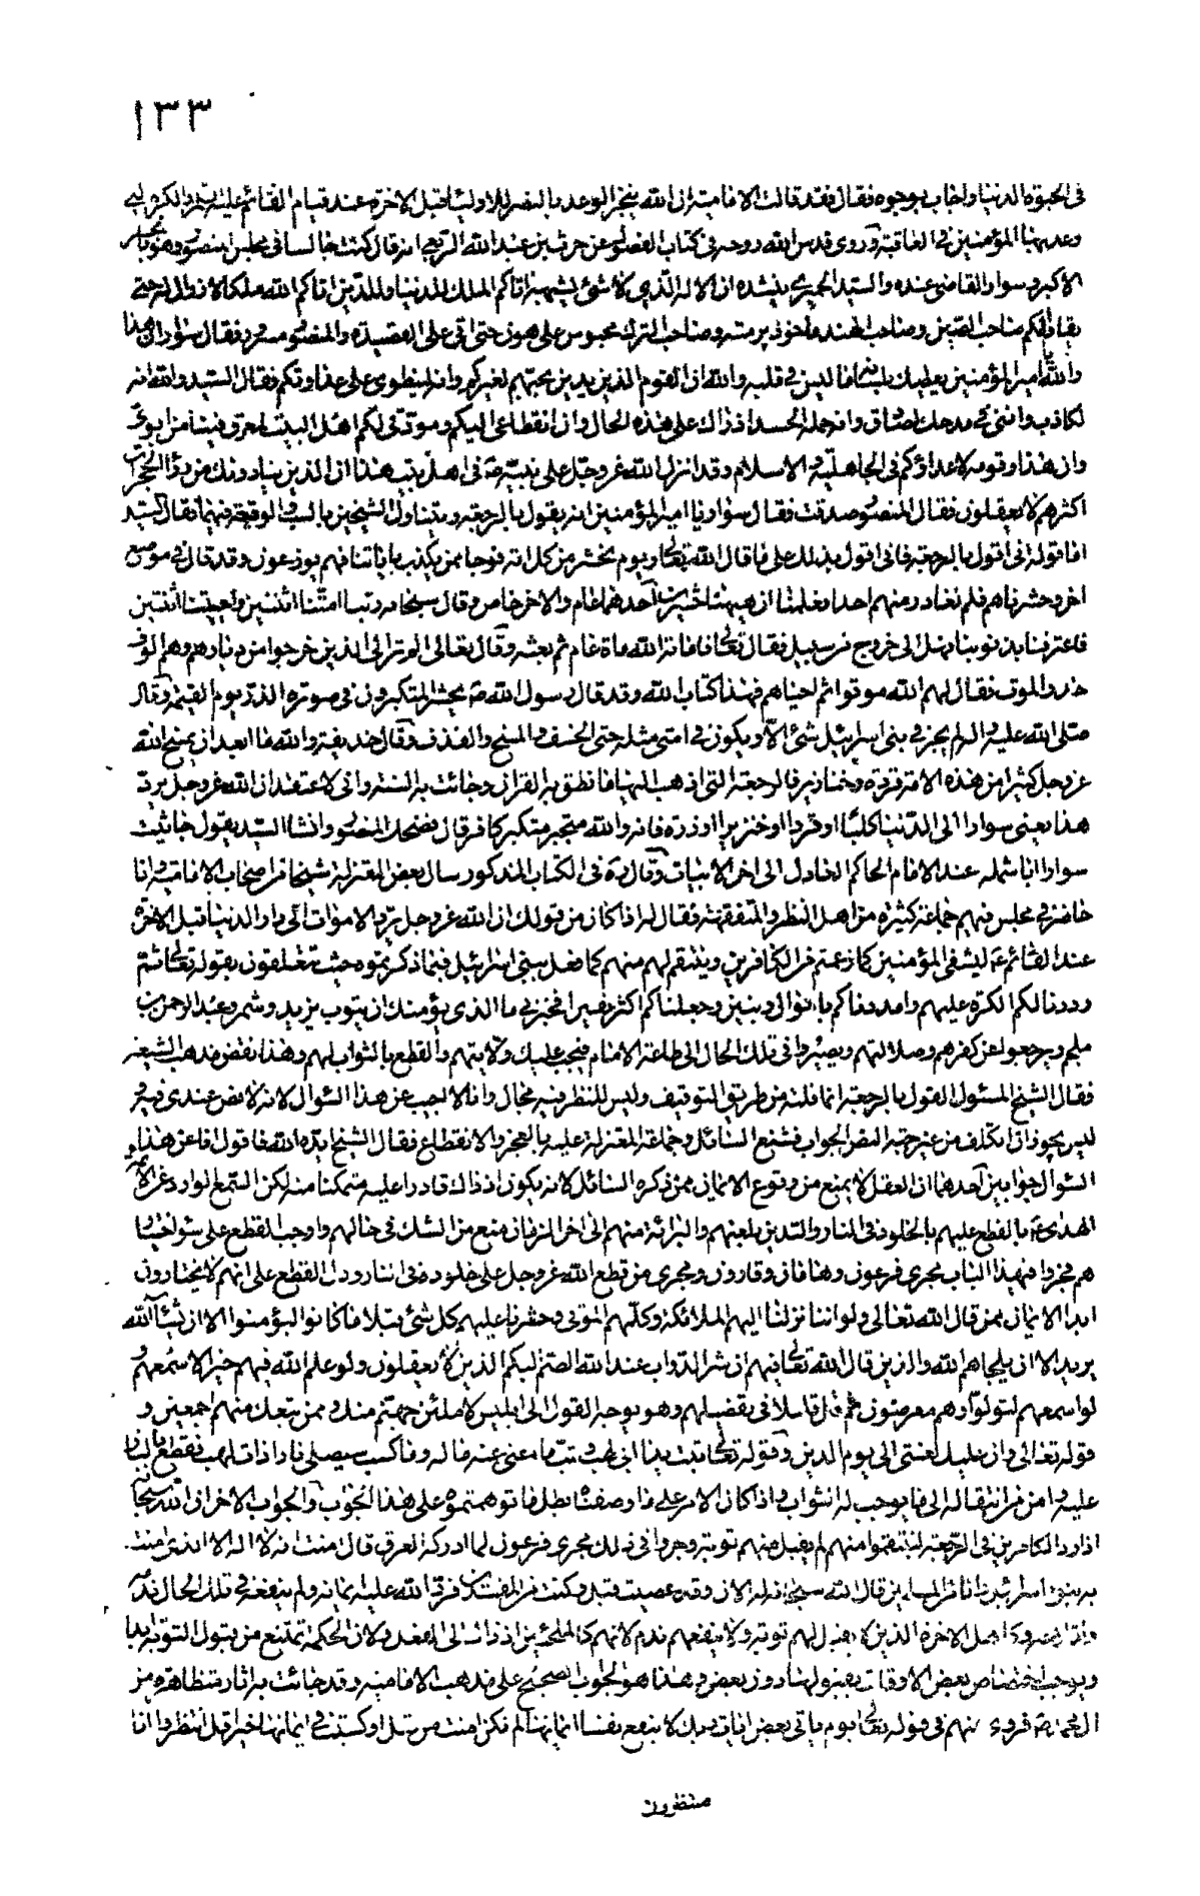 ١٣٣
في الحيوة الدنيا واجاب بوجوه فقال فقد قالت الامامية ان الله ينجز الوعد بالنصر للاولياء قبل الاخرة عند قيام القائم عليه السلام والكرة التي
وعد بها المؤمنين في العاقبة وروى قدس الله روحه في كتاب الفصول عن حرث بن عبد الله الربعي انه قال كنت جالسا في مجلس المنصور وهو بالجسر
الاكبر وسوار القاضي عنده والسيد الحميري ينشده ان الاله الذي لا شئ يشبهه اتاكم الملك للدنيا وللدين اتاكم الله ملكا لا زوال له حتى
يقاد اليكم صاحب الصين وصاحب الهند ماخوذ برمته وصاحب الترك محبوس على هون حتى اتى على القصيدة والمنصور مسرور فقال سوار ان هذا
والله يا امير المؤمنين يعطيك بلسانه ما ليس في قلبه والله ان القوم الذين يدين بحبهم لغيركم وانه لينطوى على عداوتكم فقال السيد والله انه
لكاذب وانني في مدحك لصادق وانه حمله الحسد اذ راك على هذه الحال وان انقطاعى اليكم ومودتى لكم اهل البيت لمعرق فينا من ابوى
وان هذا وقومه لاعداؤكم في الجاهلية والاسلام وقد انزل الله عز وجل على نبيه ص في اهل بيت هذا ان الذين ينادونك من وراء الحجرات
اكثرهم لا يعقلون فقال المنصور صدقت فقال سوار يا امير المؤمنين انه يقول بالرجعة ويتناول الشيخين بالسب والوقيعة فيهما فقال السيد
اما قوله انى اقول بالرجعة فانى اقول بذلك على ما قال الله تعالى ويوم نحشر من كل امة فوجا ممن يكذب باياتنا فهم يوزعون وقد قال في موضع
اخر وحشرناهم فلم نغادر منهم احدا فعلمنا ان ههنا حشرين احدهما عام والاخر خاص وقال سبحانه ربنا امتنا اثنتين واحييتنا اثنتين
فاعترفنا بذنوبنا فهل الى خروج من سبيل فقال تعالى فاماته الله مائة عام ثم بعثه وقال تعالى الم تر الى الذين خرجوا من ديارهم وهم الوف
حذر الموت فقال لهم الله موتوا ثم احياهم فهذا كتاب الله وقد قال رسول الله ص يحشر المتكبرون في صورة الذر يوم القيمة وقال
صلى الله عليه واله لم يجر في بنى اسرائيل شئ الا ويكون في امتى مثله حتى الخسف والمسخ والقذف وقال حذيفة والله ما ابعد ان يمسخ الله
عز وجل كثيرا من هذه الامة قردة وخنازير فالرجعة التى اذهب اليها ما نطق به القران وجائت به السنة وانى لاعتقد ان الله عز وجل يرد
هذا يعنى سوارا الى الدنيا كلبا او قردا او خنزيرا او ذرة فانه والله متجبر متكبر كافر قال فضحك المنصور وانشا السيد يقول جاثيت
سوارا ابا شملة عند الامام الحاكم العادل الى اخر الابيات وقال ره في الكتاب المذكور سال بعض المعتزلة شيخا من اصحاب الامامية وانا
حاضر في مجلس فيهم جماعة كثيرة من اهل النظر والمتفقهة فقال له اذا كان من قولك ان الله عز وجل يرد الاموات الى دار الدنيا قبل الاخرة
عند القائم ع ليشفى المؤمنين كما زعمتم من الكافرين وينتقم لهم منهم كما فعل ببنى اسرائيل فيما ذكرتموه حيث تتعلقون بقوله تعالى ثم
رددنا لكم الكرة عليهم وامددناكم باموال وبنين وجعلناكم اكثر نفيرا فخبرنى ما الذى يؤمنك ان يتوب يزيد وشمر وعبد الرحمن بن
ملجم ويرجعوا عن كفرهم وضلالتهم ويصيروا في تلك الحال الى طاعة الامام فيجب عليك ولايتهم والقطع بالثواب لهم وهذا نقض مذهب الشيعة
فقال الشيخ المسئول القول بالرجعة انما قلته من طريق التوقيف وليس للنظر فيه مجال وانا لا اجيب عن هذا السؤال لانه لا نص عندى فيه و
ليس يجوز ان اتكلف من غير جهة النص الجواب فشنع السائل وجماعة المعتزلة عليه بالعجز والانقطاع فقال الشيخ ايده الله فاقول انا عن هذا
السؤال جوابين احدهما ان العقل لا يمنع من وقوع الايمان ممن ذكره السائل لانه يكون اذ ذاك قادرا عليه متمكنا منه لكن السمع الوارد عن ائمة
الهدى ع بالقطع عليهم بالخلود في النار والتدين بلعنهم والبرائة منهم الى اخر الزمان منع من الشك في حالهم واوجب القطع على سوء اختيارهم
فجروا في هذا الباب مجرى فرعون وهامان وقارون ومجرى من قطع الله عز وجل على خلوده في النار ودل القطع على انهم لا يختارون
ابدا الايمان ممن قال الله تعالى ولو اننا نزلنا اليهم الملائكة وكلمهم الموتى وحشرنا عليهم كل شئ قبلا ما كانوا ليؤمنوا الا ان يشاء الله
يريد الا ان يلجاهم الله والذين قال الله تعالى فيهم ان شر الدواب عند الله الصم البكم الذين لا يعقلون ولو علم الله فيهم خيرا لاسمعهم و
لو اسمعهم لتولوا وهم معرضون ثم قال قائلا في تفضيلهم وهو يوجه القول الى ابليس لاملئن جهنم منك وممن تبعك منهم اجمعين و
قوله تعالى وان عليك لعنتى الى يوم الدين وقوله تعالى تبت يدا ابى لهب وتب ما اغنى عنه ماله وما كسب سيصلى نارا ذات لهب فقطع بالنار
عليه وامن من انتقاله الى ما يوجب له الثواب واذا كان الامر على ما وصفناه بطل ما توهمتموه على هذا الجواب والجواب الاخر ان الله سبحانه
اذا رد الكافرين في الرجعة لينتقموا منهم لم يقبل منهم توبة وجروا في ذلك مجرى فرعون لما ادركه الغرق قال امنت انه لا اله الا الذى امنت
به بنو اسرائيل وانا من المسلمين قال الله سبحانه له الان وقد عصيت قبل وكنت من المفسدين فرد الله عليه ايمانه ولم ينفعه في تلك الحال ندمه
واقلاعه وكاهل الاخرة الذين لا يقبل لهم توبة ولا ينفعهم ندم لانهم كالملجئين اذ ذاك الى الفعل ولان الحكمة تمنع من قبول التوبة ابدا
ويوجب اختصاص بعض الاوقات بقبولها دون بعض وهذا هو الجواب الصحيح على مذهب الامامية وقد جائت به اثار متظاهرة من
ال محمد ص فروى عنهم في قوله تعالى يوم ياتى بعض ايات ربك لا ينفع نفسا ايمانها لم تكن امنت من قبل او كسبت في ايمانها خيرا قل انتظروا انا
منتظرون